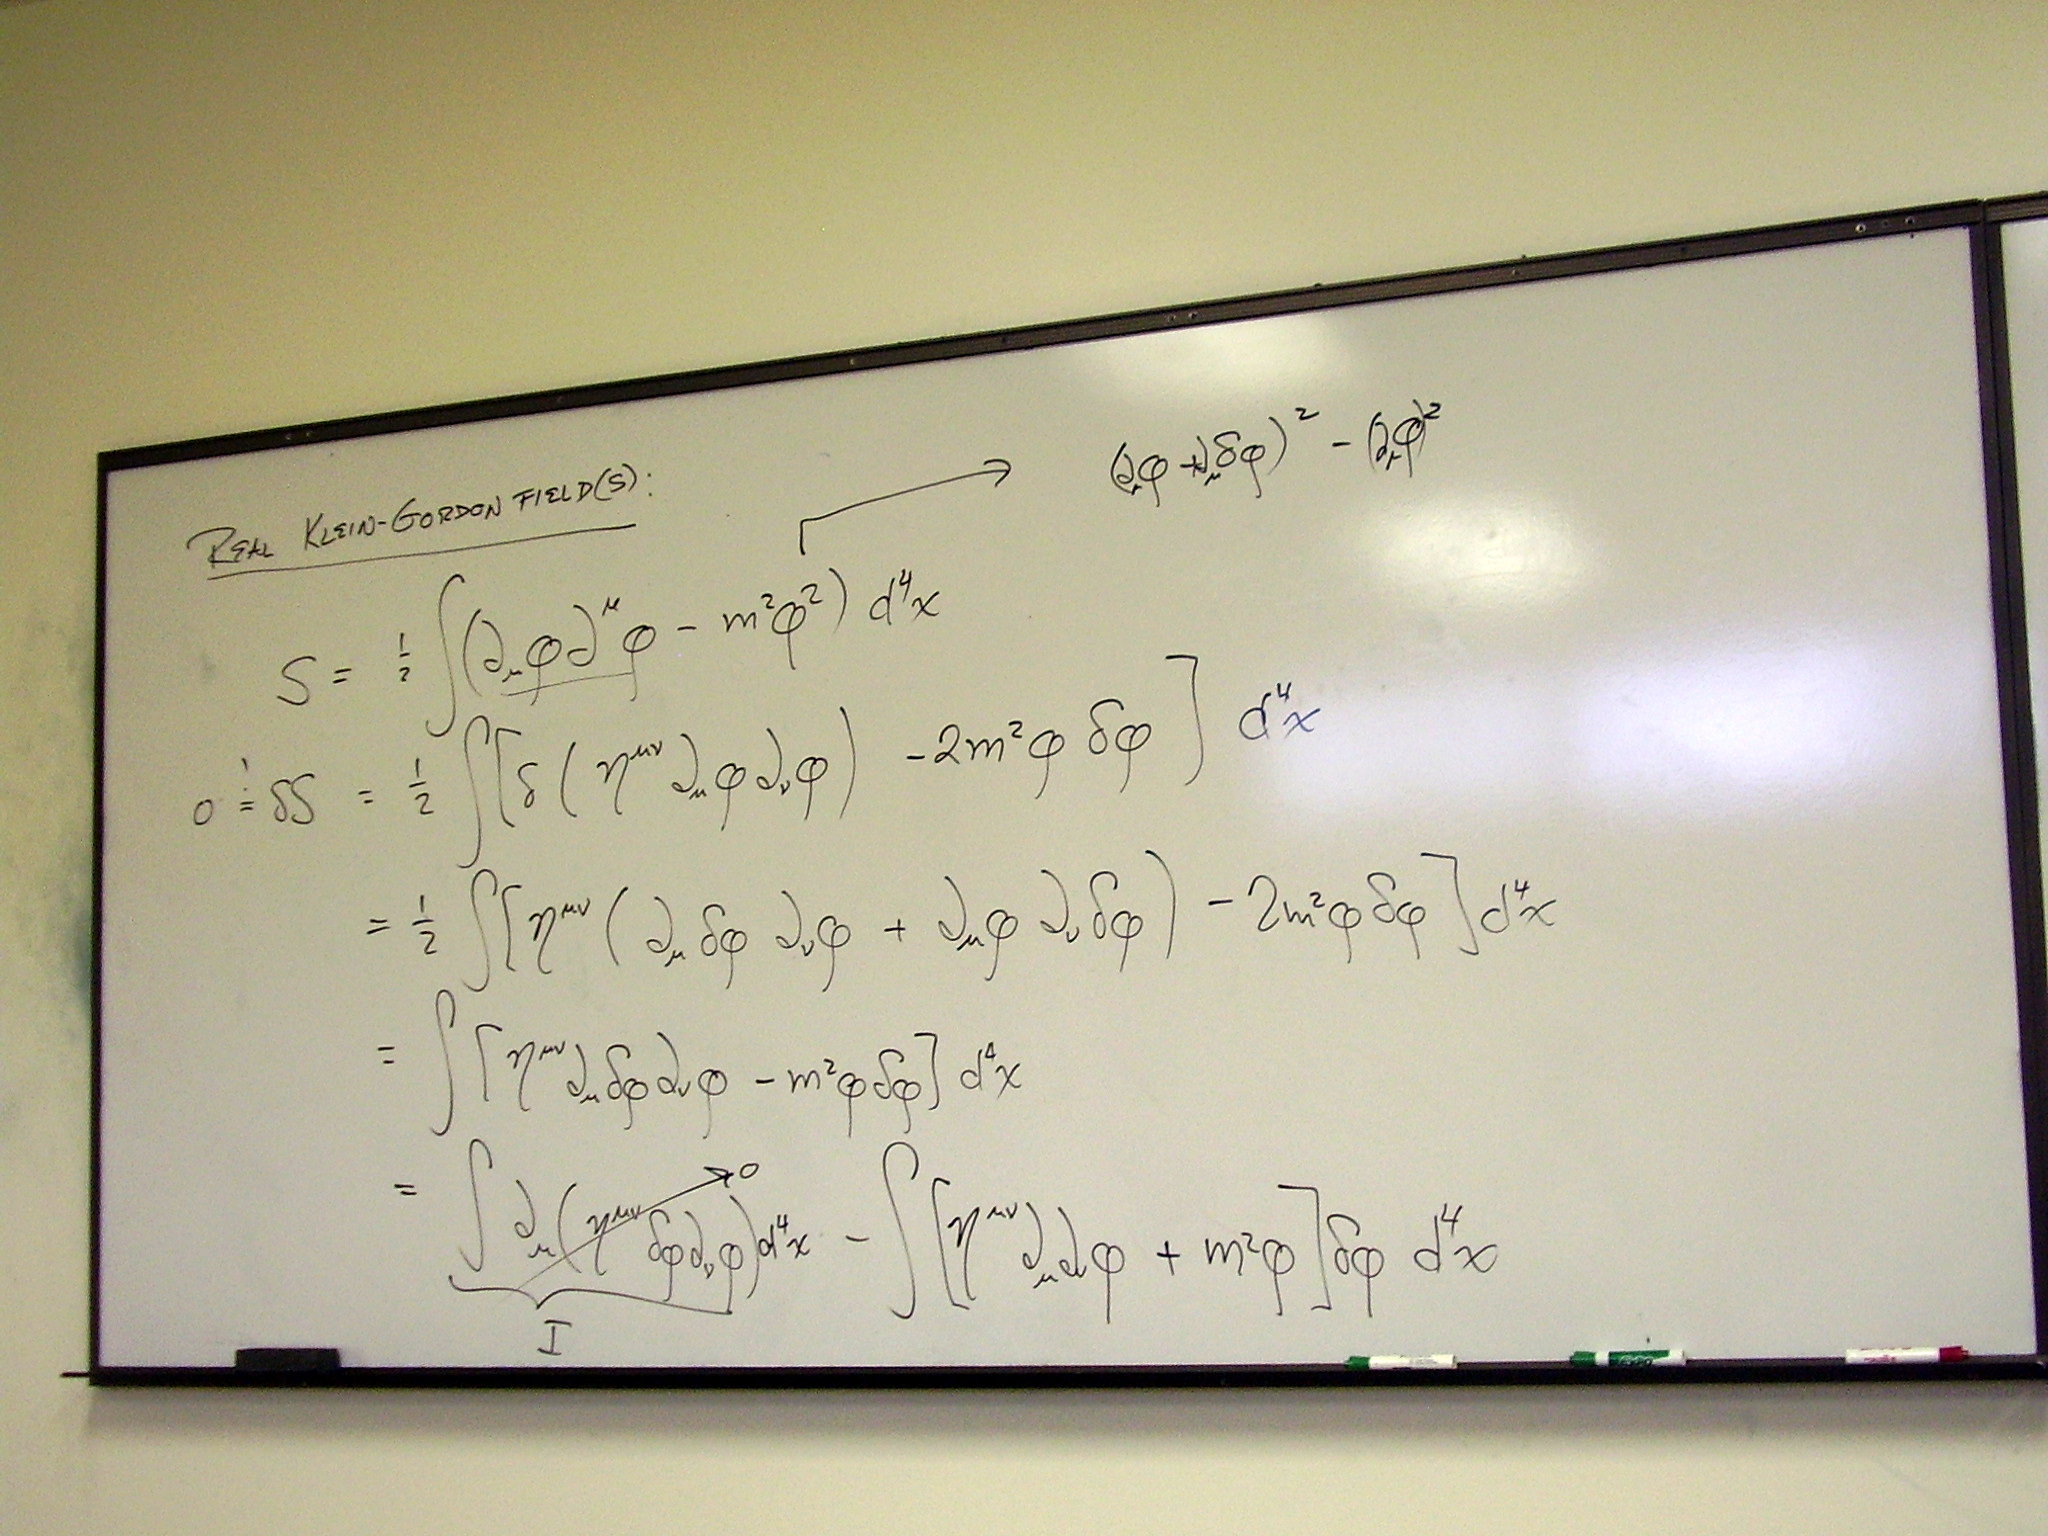 (∂_μφ + ∂_μδφ)² - (∂_μφ)²
REAL KLEIN-GORDON FIELD(S):
S = ½ ∫(∂_μφ∂^μφ - m²φ²) d⁴x
0 ≐ δS = ½ ∫[δ(η^μν ∂_μφ∂_νφ) - 2m²φ δφ] d⁴x
= ½ ∫[η^μν(∂_μδφ ∂_νφ + ∂_μφ ∂_νδφ) - 2m²φδφ]d⁴x
= ∫[η^μν∂_μδφ∂_νφ - m²φδφ] d⁴x
= ∫∂_μ(η^μν δφ∂_νφ)d⁴x → 0 - ∫[η^μν∂_μ∂_νφ + m²φ]δφ d⁴x
I